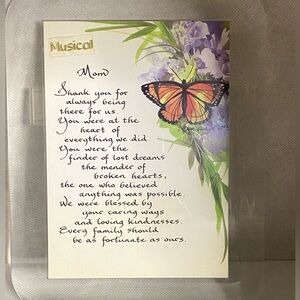 Musical
Mom
Thank you for
always being
there for us.
You were at the
heart of
everything we did.
You were the
finder of lost dreams
the mender of
broken hearts,
the one who believed
anything was possible.
We were blessed by
your caring ways
and loving kindnesses.
Every family should
be as fortunate as ours.